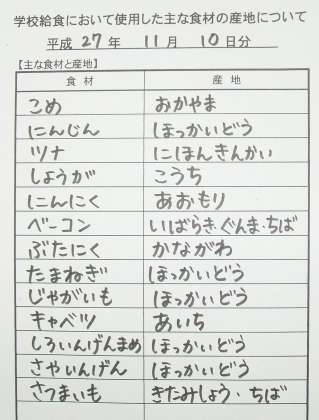 学校給食において使用した主な食材の産地について
平成 27 年 11 月 10 日分
【主な食材と産地】
食材 産地
こめ おかやま
にんじん ほっかいどう
ツナ にほんきんかい
しょうが こうち
にんにく あおもり
ベーコン いばらき・ぐんま・ちば
ぶたにく かながわ
たまねぎ ほっかいどう
じゃがいも ほっかいどう
キャベツ あいち
しろいんげんまめ ほっかいどう
さやいんげん ほっかいどう
さつまいも きたみしょう・ちば